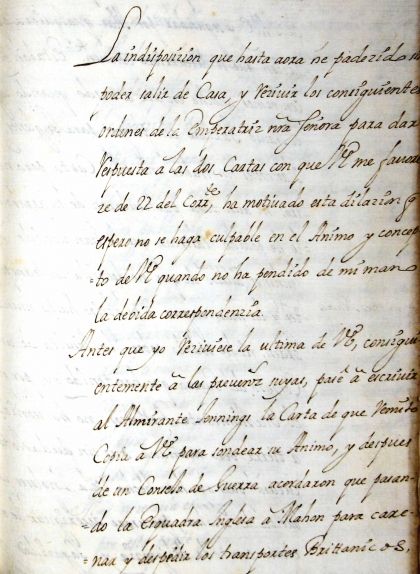 La indisposicion que hasta aora he padezido sin
poder salir de Casa, y rezivir los consiguientes
ordenes de la Emperatriz nrā Señora para dar
respuesta a las dos Cartas con que VE me favore
ze de 22 del Corrte, ha motivado esta dilazion q
espero no se haga culpable en el Animo y concep
=to de VE quando no ha pendido de mi man
la debida correspondenzia.
Antes que yo reziviese la ultima de VE, consigui
entemente â las suyas, pasê â escrivir
al Almirante Jennings la Carta de que remito
Copia â VE para sondear su Animo, y despues
de un Consejo de Guerra acordaron que pasan
do la Esquadra Inglesa a Mahon para care
nar y despedir los transportes Brittanicos,